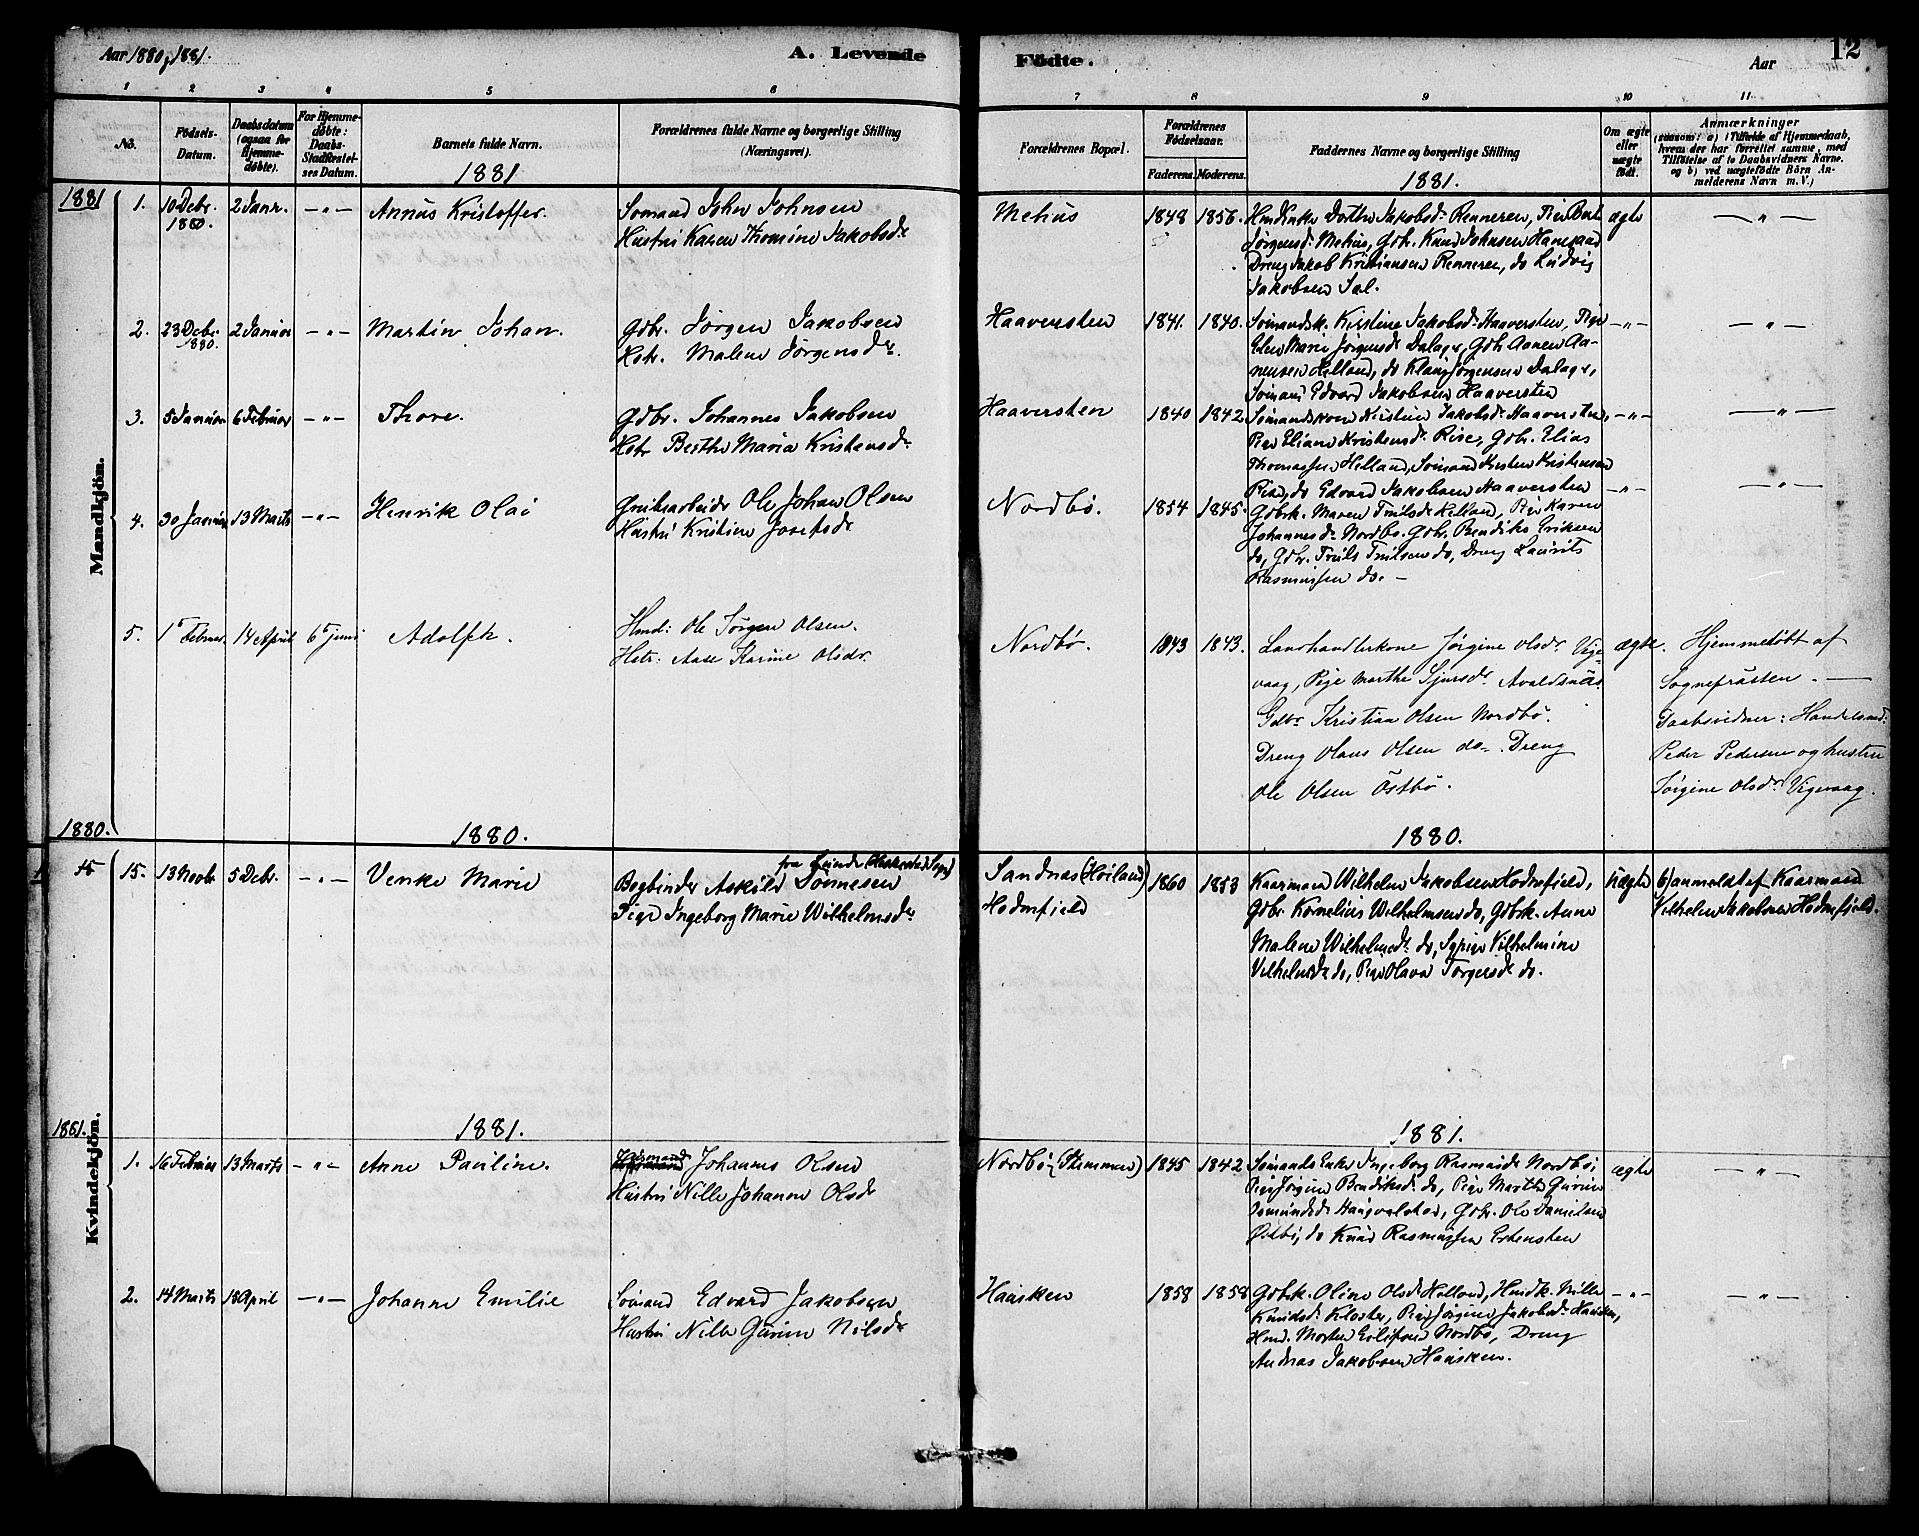 Aar 1880, 1881.
A. Levende
Födte.
Aar
12
1 2 3 4 5 6 7 8 9 10 11
No.
Födsels-
Datum.
Daabsdatum
(ogsaa for
Hjemme-
döbte).
For Hjemme-
döbte:
Daabs-
Stadfæstel-
ses Datum.
Barnets fulde Navn.
Forældrenes fulde Navne og borgerlige Stilling
(Næringsvei).
Forældrenes Bopæl.
Forældrenes
Födselsaar.
Faderens. Moderens.
Faddernes Navne og borgerlige Stilling
Om ægte
eller
uægte
födt.
Anmærkninger
(saasom: a) i Tilfælde af Hjemmedaab,
hvem der har forrettet samme, med
Tilföielse af to Daabsvidners Navne,
og b) ved uægtefödte Börn An-
melderens Navn m. V.)
1881
1881
1881.
Mandkjön.
1. 10 Debr. 2 Janr. — " — Annus Kristoffer. Sømand John Johnsen
1880.
Hustru Karen Thomine Jakobsdr
Mehus 1848 1856. Dorthe Jakobsdr Renneren, Pige Bert
Jørgensdr Mehus, Gdbr. Knud Johnsen
Dreng Jakob Kristiansen Renneren, do Ludvig
Jakobsen Sal.
ægte — " —
2. 23 Debr. 2 Januar — " — Martin Johan. Gdbr. Jørgen Jakobsen
1880.
Hstr. Malene Jørgensdr.
Haaversten 1841. 1840. Sømandsk. Kirstine Jakobsdr Haaversten, Pige
Elen Marie Jørgensdr Dalager, Gdbr Aanen Aa-
nensen Helland, do Jørgensen Dalager,
Sømand Edvard Jakobsen Haaversten
— " — — " —
3. 5 Januar 6 Februar — " — Thore. Gdbr. Johannes Jakobsen
Hstr Berthe Maria Kristensdr
Haaversten 1840 1842 Sømandskone Kirstine Jakobsdr Haaversten,
Pige Eliane Kristensdr Rise, Gdbr. Elias
Thomassen Helland, Sømand Kristensen
Rise, do Edvard Jakobsen Haaversten
— " — — " —
4. 30 Januar 13 Marts — " — Henrik Olai Ole Johan Olsen
Hustru Kristine Josefsdr
Nordbø. 1854 1845. Gdbrk. Maren Trulsdr Helland, Pige Karen
Johannesdr Nordbø. Gdbr. Bendiks Eriksen
do, Gdbr. Truls Trulsen do, Dreng Laurits
Rasmussen do. —
— " — — " —
5. 1 Februar 14 April 6 juni Adolfh. Hmd: Ole Jørgen Olsen.
Hstr: Aase Karine Olsdr.
Nordbø. 1843 1843. Landhandlerkone Jørgine Olsdr Vige-
vaag, Pige Marthe Sjursdr Avaldsnæs.
Gdbr Kristian Olsen Nordbø.
Dreng Olaus Olsen do. Dreng
Ole Olsen Östbø.
ægte. Hjemmedøbt af
Sognepræsten. —
Daabsvidner: Handelsmd.
Peder Pedersen og hustru
Jørgine Olsdr Vigevaag.
1880.
1880.
1880.
15 15. 13 Novbr 5 Debr. — " — Venke Marie fra Lunde
Bogbinder Askild Tønnesen
Pige Ingeborg Marie Wilhelmsdr
Sandnæs (Høiland)
Hodnefield
1860 1853 Kaarmand Wilhelm Jakobsen Hodnefield,
Gdbr Kornelius Wilhelmsen do, Gdbrk. Anne
Malene Wilhelmsdr do, Sypige Vilhelmine
Vilhelmsdr do, Pige Olava Torgersdr do.
uægte b) anmeldt af Kaarmand
Vilhelm Jakobsen Hodnefield.
Kvindekjön.
1881.
1881.
1881.
1. 16 Februar 13 Marts — " — Anne Pauline. Johannes Olsen
Hustru Nille Johanne Olsdr
Nordbø (Stemmen) 1845 1842 Sømands Enke Ingeborg Rasmusdr Nordbø,
Pige Jørgine Bendiksdr do, Pige Marthe Gurine
Haugvalstad, Gdbr. Ole Danielsen
Østbø, do Knud Rasmussen
ægte — " —
2. 14 Marts 18 April — " — Johanne Emilie Sømand Edvard Jakobsen
Hustru Nille Gurine Nilsdr
Haasken 1858 1858 Gdbrk. Oline Olsdr Helland, Hmdk. Nille
Knudsdr Kloster, Pige Jørgine Jakobsdr Haasken,
Hmd. Morten Nordbø, Dreng
Andreas Jakobsen Haasken.
— " — — " —